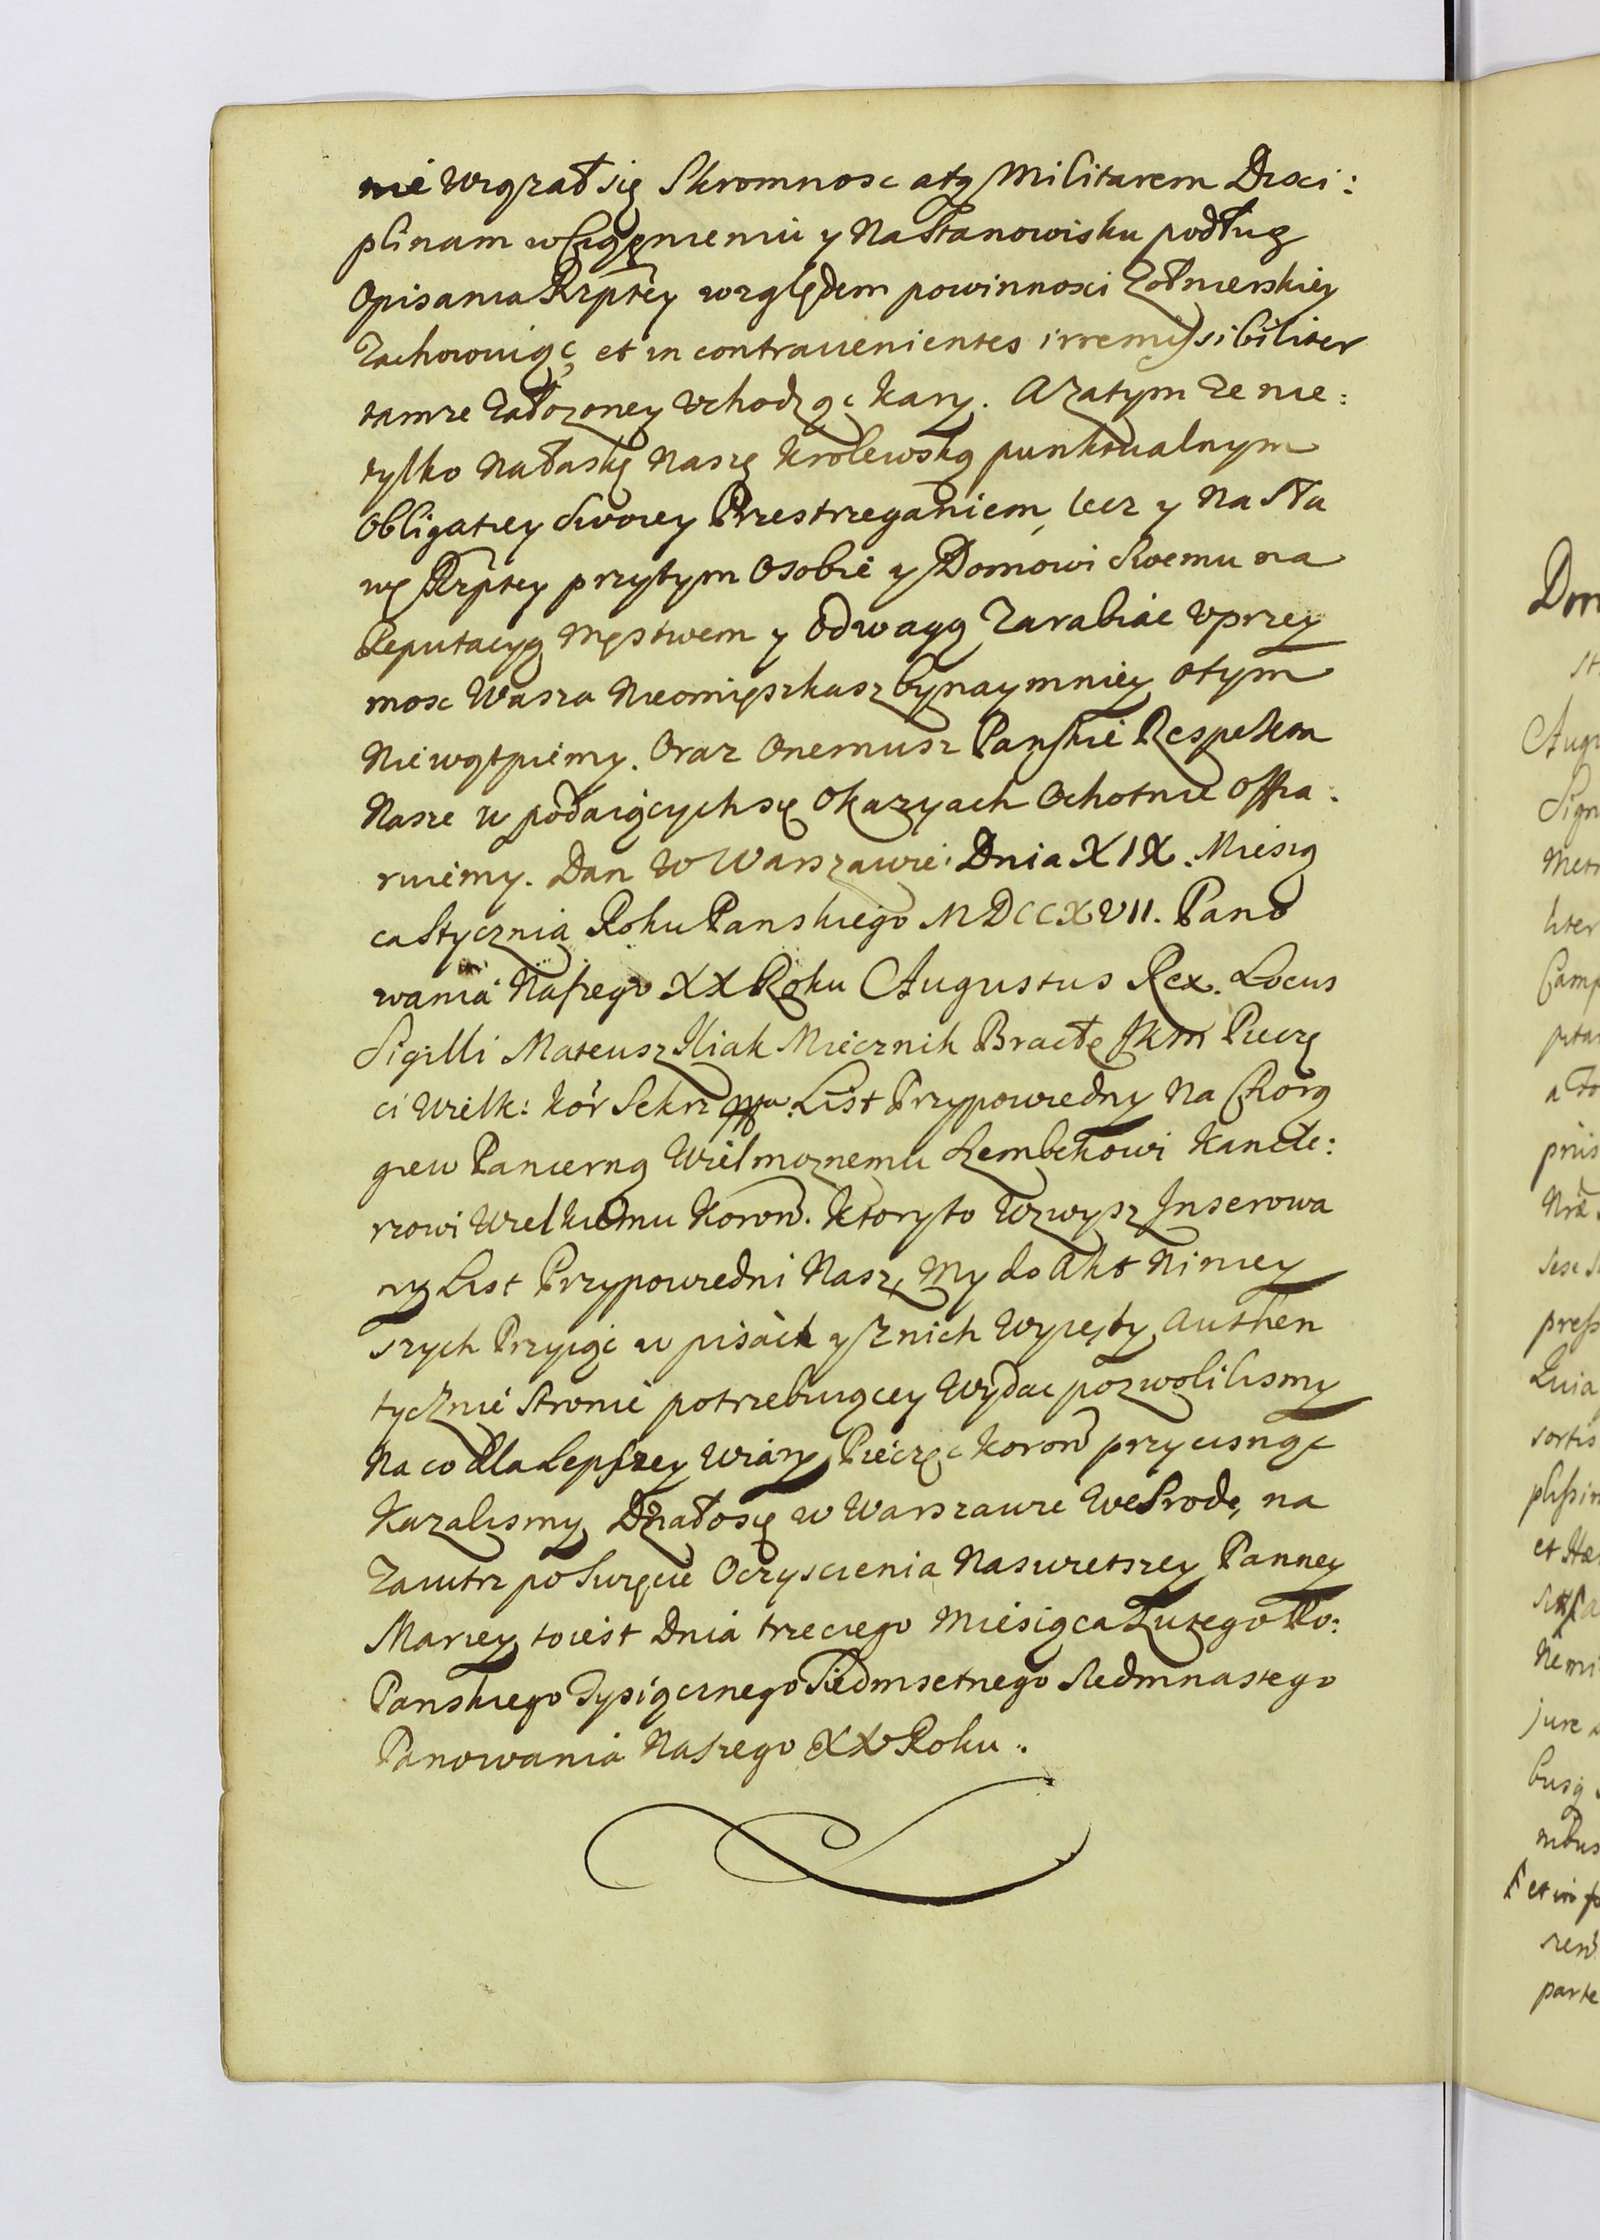 nie wrązał się Skromnosc atq Militarem Disci:
plinam w Ciągnieniu y Na Stanowisku podług
Opisania Rzptey względem powinnosci Zołnierskiey
Zachowuiąc, et in contravenientes irremissibiliter
tamze Załozoney Uchodząc kary. A Zatym ze nie:
tylko Na łaskę Naszę Krolewską punktualnym
Obligatiey Swoiey Przestrzeganiem, lecz y Na Sła
wę Rzptey przytym Osobie y Domowi Swemu na
Reputacyą Męstwem y Odwagą Zarabiac Uprzey
mosc Wasza Nieomięszkasz bynaymniey o tym
Nie wątpiemy. Oraz Onemusz Panskie Respekta
Nasze w podaiących się Okazyach Ochotnie Offia:
ruiemy. Dan W Warszawie. Dnia XIX. Miesią
ca Stycznia Roku Panskiego MDCCXVII. Pano
wania Naszego XX Roku Augustus Rex. Locus
Sigilli Mateusz Iliak Miecznik Bracł JKM Pieczę
ci Wielk: Kor Sekrz List Przypowiedny Na Chorą
giew Pancerną Wielmoznemu Szembekowi Kancle:
rzowi Wielkiemu Koron. Ktory to Wzwysz Inserowa
ny List Przypowiedni Nasz, My do Akt Niniey
szych Przyiąc w pisach y Z nich Wypisy Authen
tycznie Stronie potrzebuiącey Wydac pozwolilismy
Na co dla Lepszey Wiary Pieczęc Koron przycisnąc
Kazalismy Działo się w Warszawie We Srodę, na
Zaiutrz po Swięcie Oczyscienia Naswietszey Panney
Maryey to iest Dnia trzeciego Miesiąca Lutego Ro:
Panskiego Tysiącznego Siedmsetnego Siedmnastego
Panowania Naszego XX Roku.